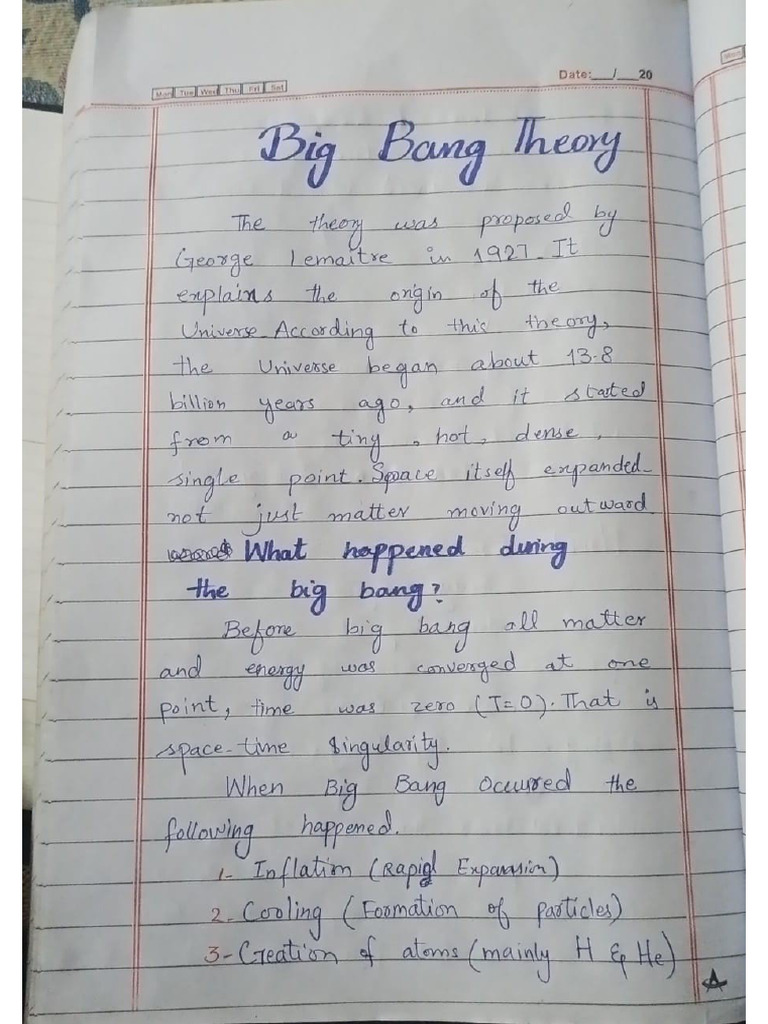 Date:__/__20
Mon Tue Wed Thu Fri Sat
Big Bang Theory
The theory was proposed by
George Lemaitre in 1927. It
explains the origin of the
Universe. According to this theory,
the Universe began about 13.8
billion years ago, and it started
from a tiny, hot, dense,
single point. Space itself expanded-
not just matter moving outward
What happened during
the big bang?
Before big bang all matter
and energy was converged at one
point, time was zero (T=0). That is
space-time singularity.
When Big Bang Occurred the
following happened.
1- Inflation (Rapid Expansion)
2- Cooling (Formation of particles)
3- Creation of atoms (mainly H & He)